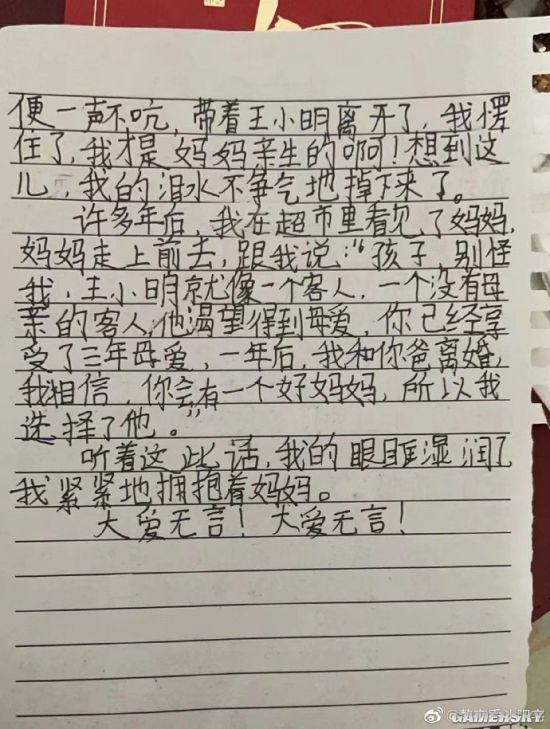 便一声不吭，带着王小明离开了，我愣
住了，我才是妈妈亲生的啊！想到这
儿，我的泪水不争气地掉下来了。
许多年后，我在超市里看见了妈妈，
妈妈走上前去，跟我说：“孩子，别怪
我，王小明就像一个客人，一个没有母
亲的客人，他渴望得到母爱，你已经享
受了三年母爱，一年后，我和你爸离婚，
我相信，你会有一个好妈妈，所以我
选择了他。”
听着这些话，我的眼眶湿润了
我紧紧地拥抱着妈妈。
大爱无言！大爱无言！
GAMERSKY